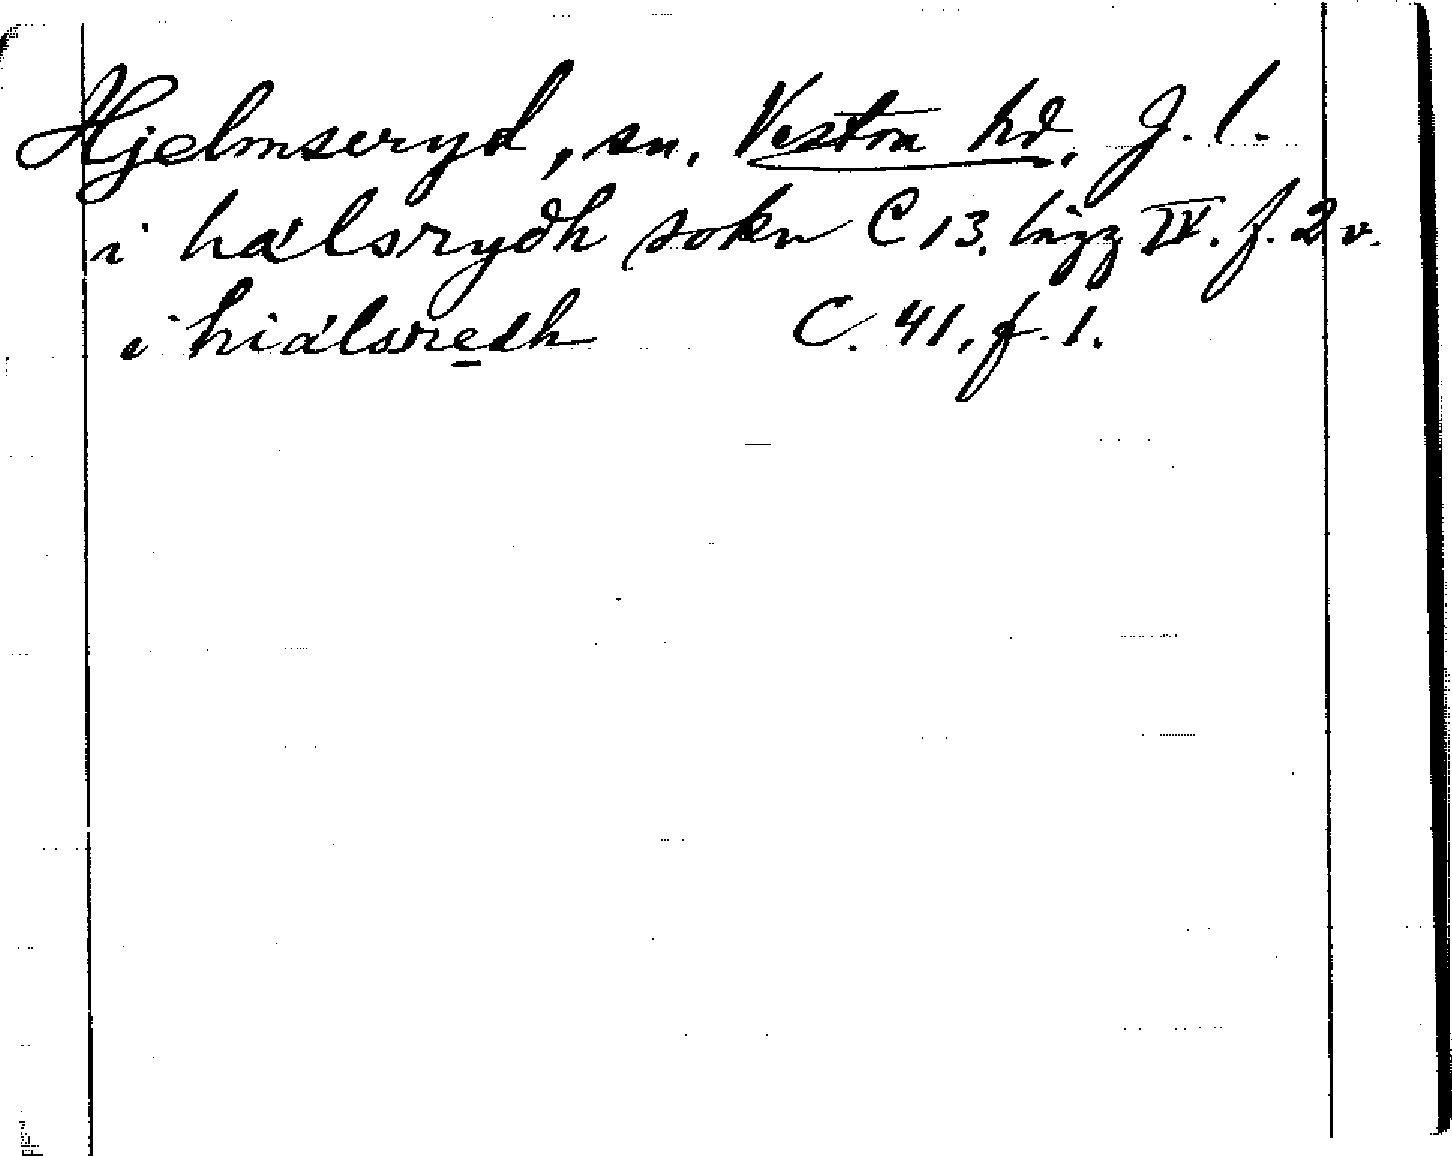 Hjelmseryd, sn. Vestra hd, J. l.
i hálsrydh sokn C 13. lägg IV. f. 2 v.
i hiálsredh C. 41, f. 1.